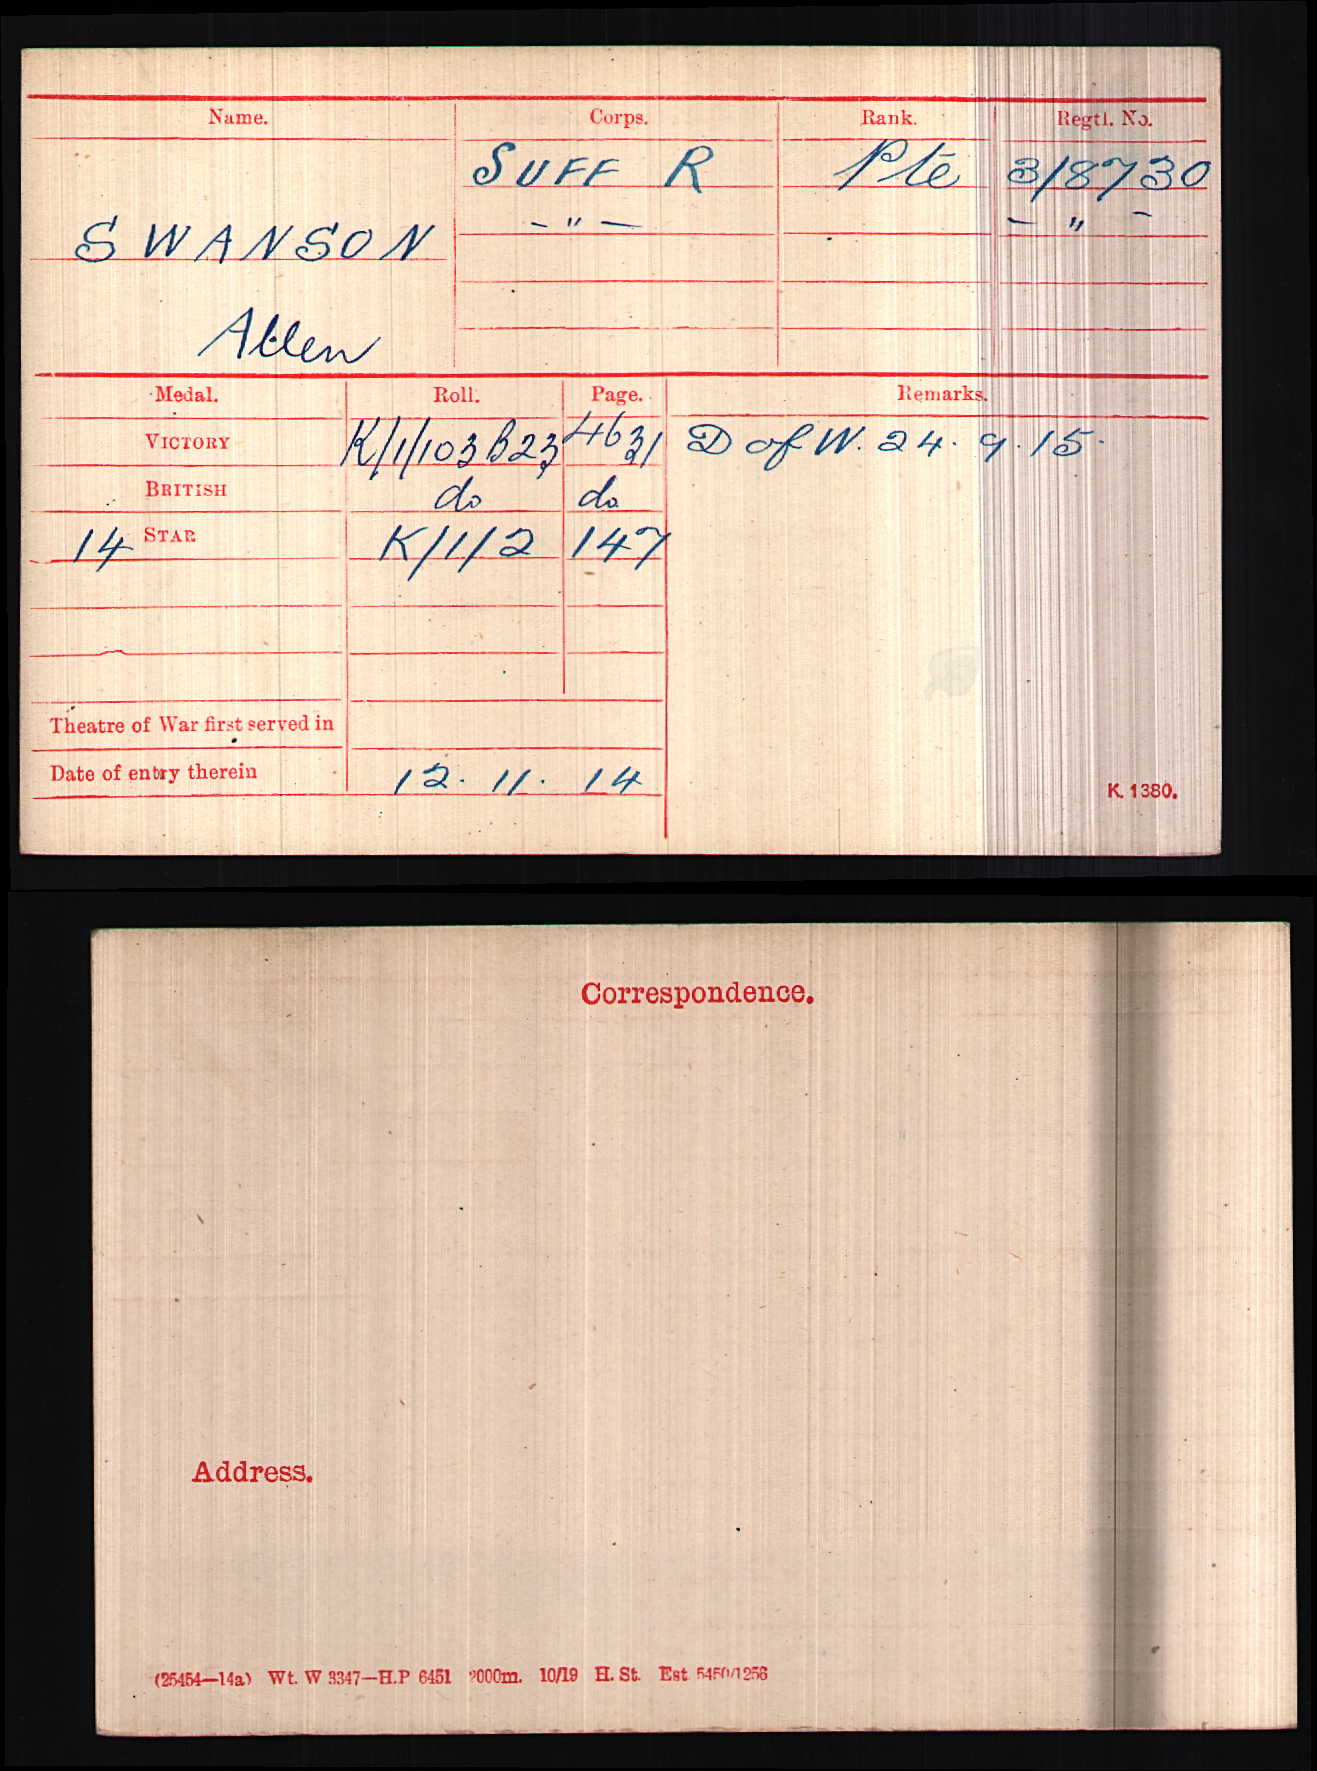 Name. Corps. Rank. Regtl. No.
SUFF R Pte 3/8730
SWANSON -"- -"-
Allen
Medal. Roll. Page. Remarks.
VICTORY K/1/103B23 4631 D of W. 24.9.15.
BRITISH do do
14 STAR K/1/2 147
Theatre of War first served in
Date of entry therein 12.11.14
K. 1380.
Correspondence.
Address.
(25454—14a) Wt. W 3347—H.P 6451 2000m. 10/19 H. St. Est. 5450/1256